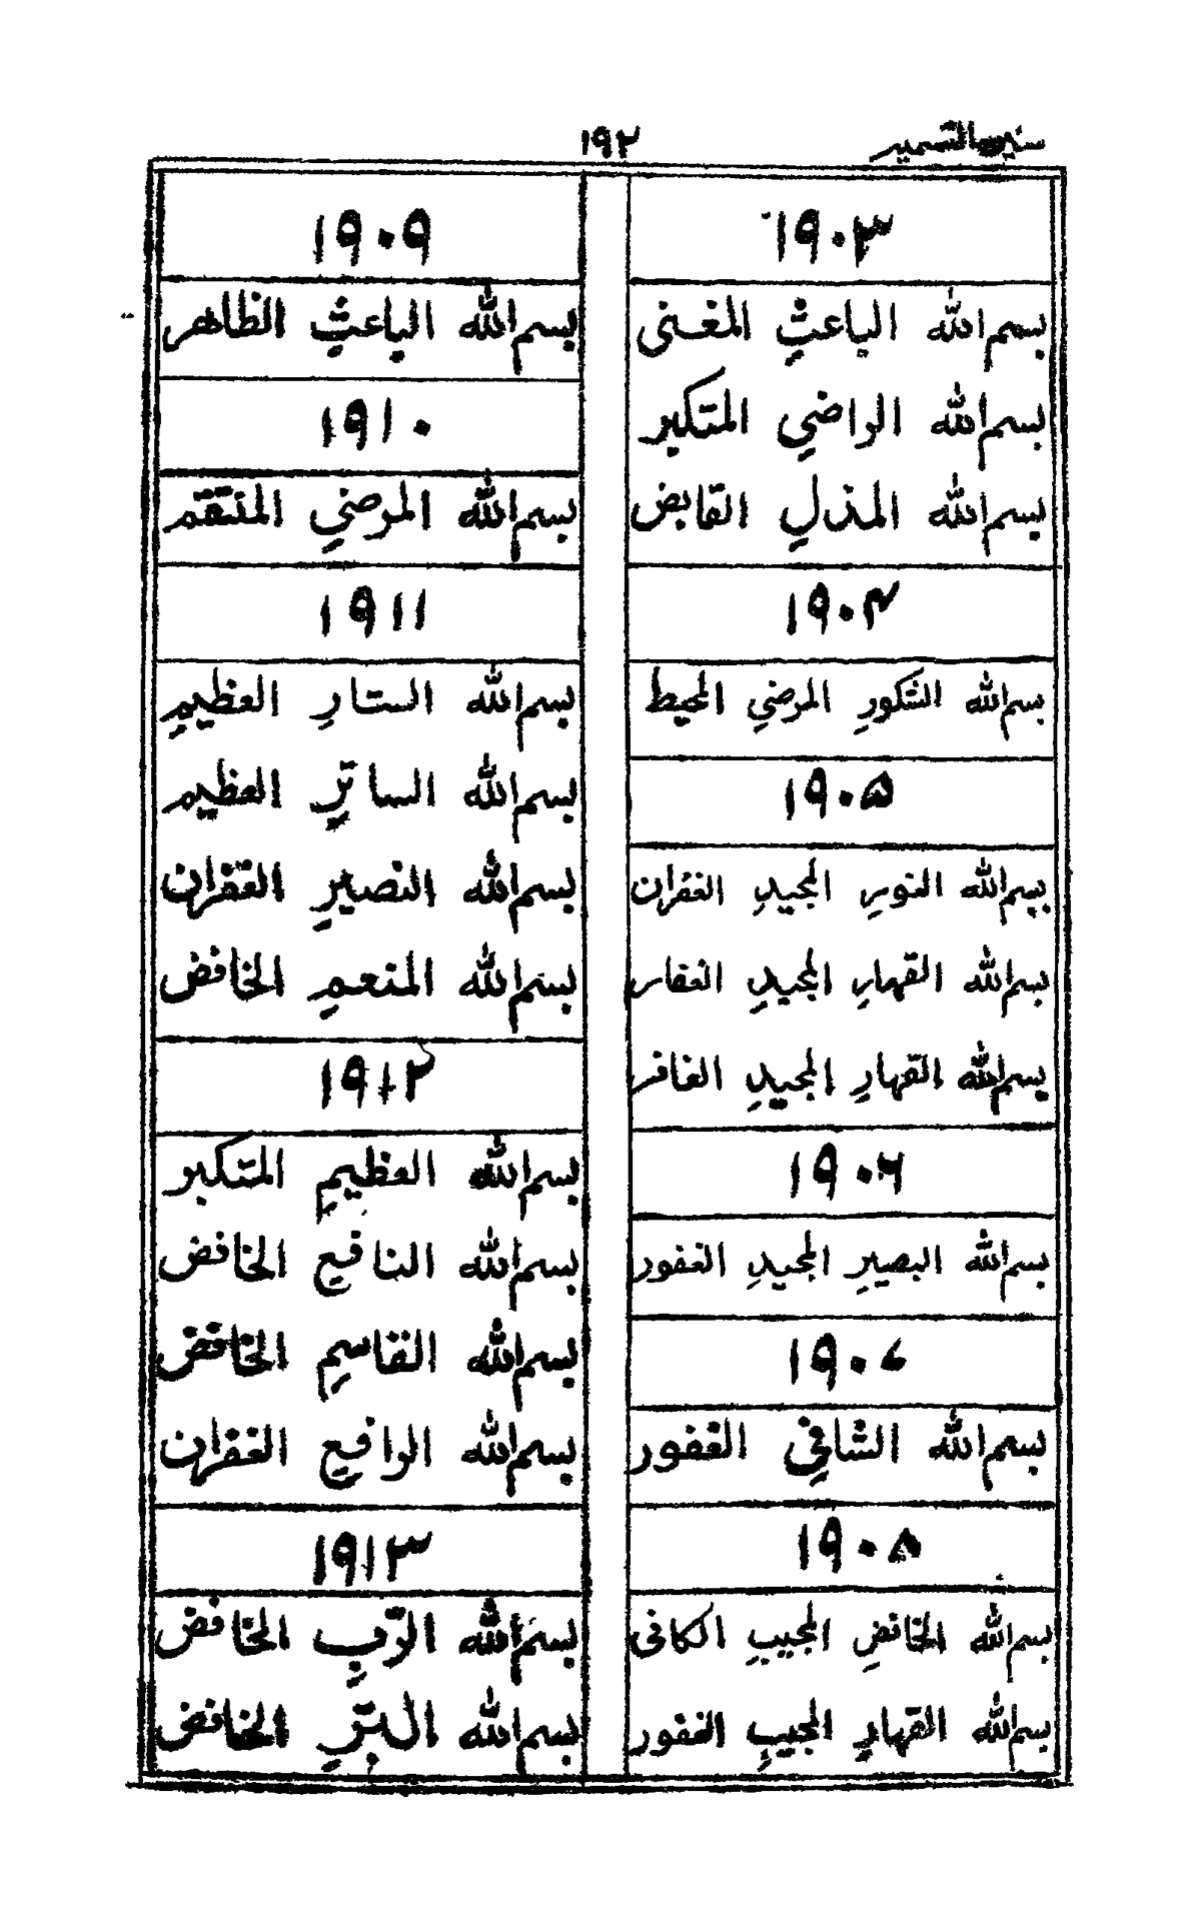 ۱۹۲
۱۹۰۳
بسم الله الباعثِ المغنى
بسم الله الراضيِ المتكبر
بسم الله المذلِ القابض
۱۹۰۴
بسم الله الشكورِ المرضيِ المحيط
۱۹۰۵
بسم الله النورِ المجيدِ الغفران
بسم الله القهارِ المجيدِ الغفار
بسم الله القهارِ المجيدِ الغافر
۱۹۰۶
بسم الله البصيرِ المجيدِ الغفور
۱۹۰۷
بسم الله الشافيِ الغفور
۱۹۰۸
بسم الله الخافضِ المجيبِ الكافى
بسم الله القهارِ المجيبِ الغفور
۱۹۰۹
بسم الله الباعثِ الظاهر
۱۹۱۰
بسم الله المرضيِ المنتقم
۱۹۱۱
بسم الله الستارِ العظيم
بسم الله الساترِ العظيم
بسم الله النصيرِ الغفران
بسم الله المنعمِ الخافض
۱۹۱۲
بسم الله العظيمِ المتكبر
بسم الله النافعِ الخافض
بسم الله القاسمِ الخافض
بسم الله الرافعِ الغفران
۱۹۱۳
بسم الله الرّبِ الخافض
بسم الله البَرِّ الخافض